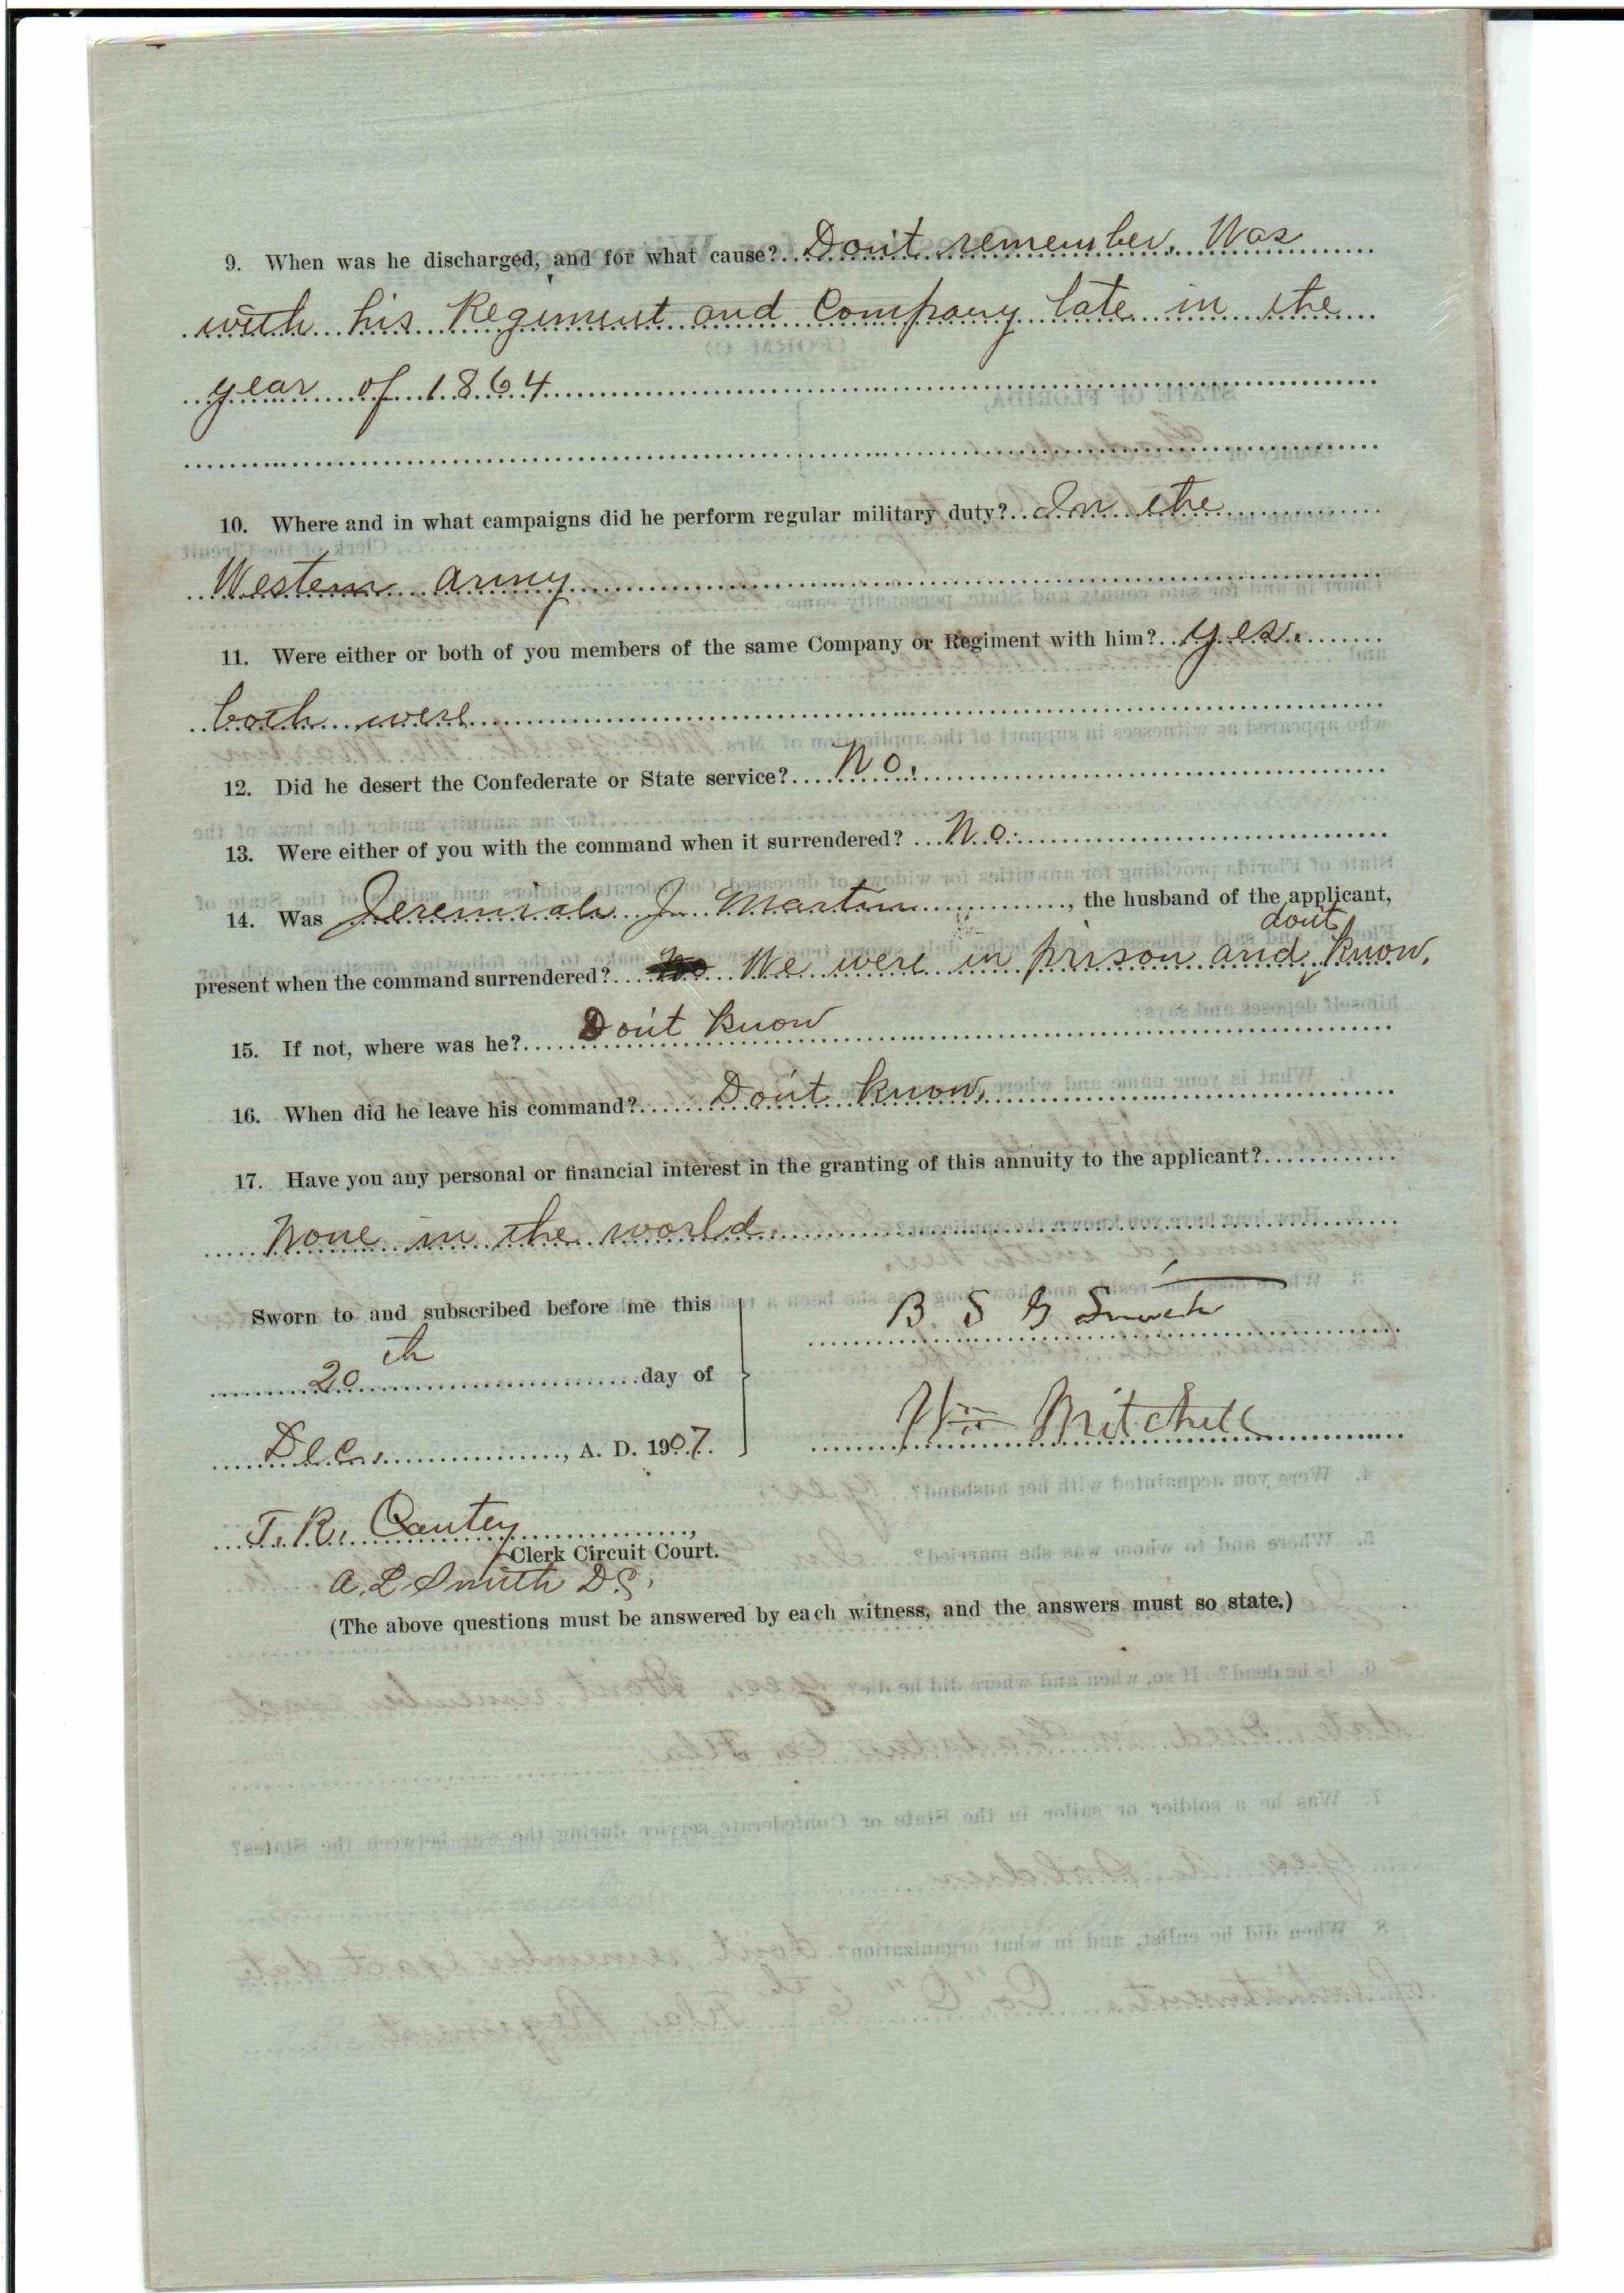 9. When was he discharged, and for what cause? Don't remember. Was
with his Regiment and Company late in the
year of 1864
10. Where and in what campaigns did he perform regular military duty? In the
Western army
11. Were either or both of you members of the same Company or Regiment with him? yes.
both were
12. Did he desert the Confederate or State service? No.
13. Were either of you with the command when it surrendered? No.
14. Was Jeremiah J. Martin, the husband of the applicant,
present when the command surrendered? No We were in prison and don't know.
15. If not, where was he? Don't know
16. When did he leave his command? Don't know.
17. Have you any personal or financial interest in the granting of this annuity to the applicant?
None in the world.
Sworn to and subscribed before me this
20th day of
Dec., A. D. 1907.
B S G Smith
Wm Mitchell
T. R. Cantey,
Clerk Circuit Court.
A. L Smith D.C.
(The above questions must be answered by each witness, and the answers must so state.)